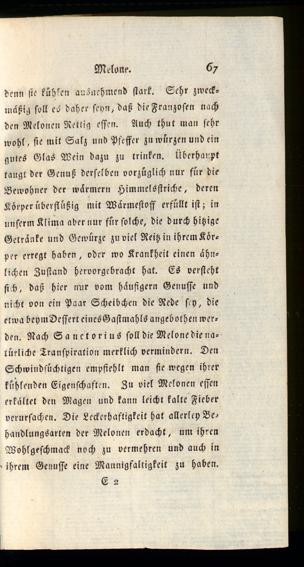 Melone. 67
denn sie kühlen ausnehmend stark. Sehr zweck-
mäßig soll es daher seyn, daß die Franzosen nach
den Melonen Rettig essen. Auch thut man sehr
wohl, sie mit Salz und Pfeffer zu würzen und ein
gutes Glas Wein dazu zu trinken. Überhaupt
taugt der Genuß derselben vorzüglich nur für die
Bewohner der wärmern Himmelsstriche, deren
Körper überflüßig mit Wärmestoff erfüllt ist; in
unserm Klima aber nur für solche, die durch hitzige
Getränke und Gewürze zu viel Reitz in ihrem Kör-
per erregt haben, oder wo Krankheit einen ähn-
lichen Zustand hervorgebracht hat. Es versteht
sich, daß hier nur vom häufigern Genusse und
nicht von ein Paar Scheibchen die Rede sey, die
etwa beym Dessert eines Gastmahls angebothen wer-
den. Nach Sanctorius soll die Melone die na-
türliche Transpiration merklich vermindern. Den
Schwindsüchtigen empfiehlt man sie wegen ihrer
kühlenden Eigenschaften. Zu viel Melonen essen
erkältet den Magen und kann leicht kalte Fieber
verursachen. Die Leckerhaftigkeit hat allerley Be-
handlungsarten der Melonen erdacht, um ihren
Wohlgeschmack noch zu vermehren und auch in
ihrem Genusse eine Mannigfaltigkeit zu haben.
E 2